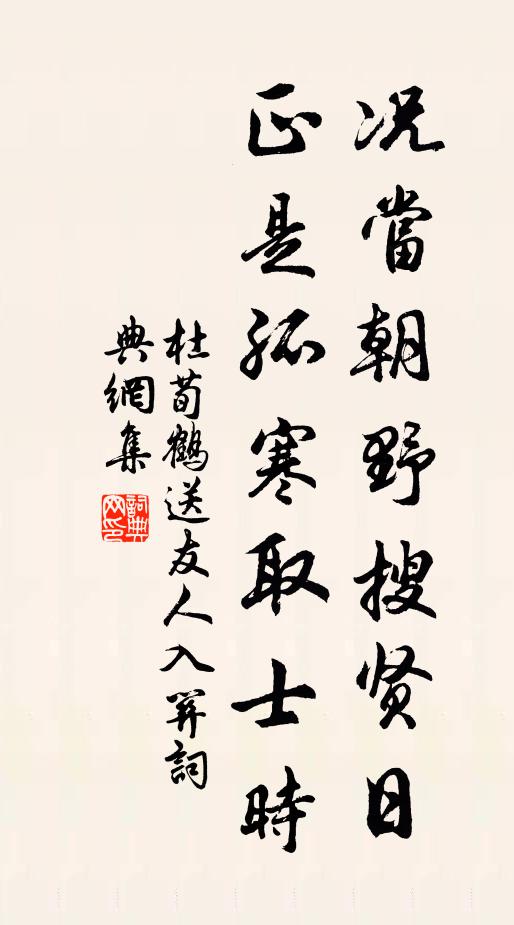 况當朝野搜贤日
正是孤寒取士時
杜荀鶴送友人入關詞
典網集
詞典網印